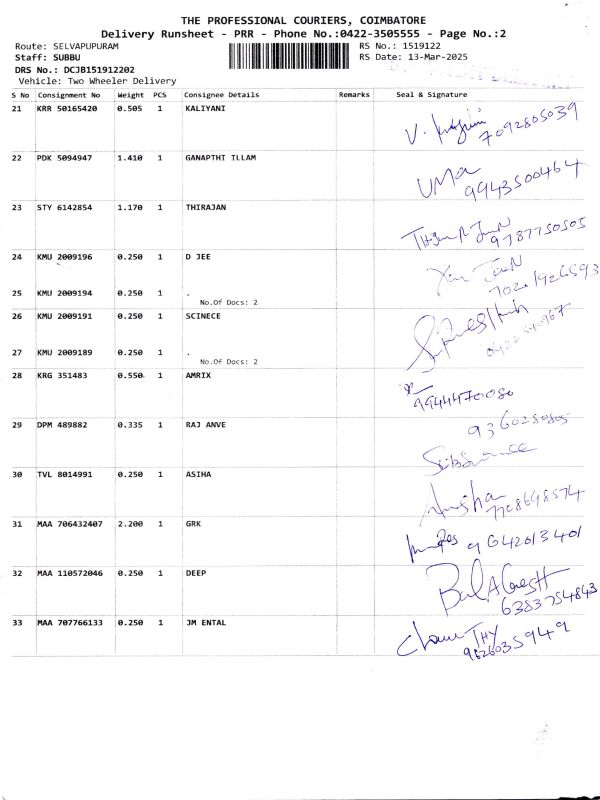 THE PROFESSIONAL COURIERS, COIMBATORE
Delivery Runsheet - PRR - Phone No.:0422-3505555 - Page No.:2
Route: SELVAPUPURAM RS No.: 1519122
Staff: SUBBU RS Date: 13-Mar-2025
DRS No.: DCJB151912202
Vehicle: Two Wheeler Delivery
S No Consignment No Weight PCS Consignee Details Remarks Seal & Signature
21 KRR 50165420 0.505 1 KALIYANI
7092805039
22 PDK 5094947 1.410 1 GANAPTHI ILLAM
UMA
9943500464
23 STY 6142854 1.170 1 THIRAJAN
9787750505
24 KMU 2009196 0.250 1 D JEE
25 KMU 2009194 0.250 1 .
No.Of Docs: 2
26 KMU 2009191 0.250 1 SCINECE
27 KMU 2009189 0.250 1 .
No.Of Docs: 2
28 KRG 351483 0.550 1 AMRIX
9944470080
29 DPM 489882 0.335 1 RAJ ANVE
9360250805
30 TVL 8014991 0.250 1 ASIHA
7708698574
31 MAA 706432407 2.200 1 GRK
9642013401
32 MAA 110572046 0.250 1 DEEP
6383754843
33 MAA 707766133 0.250 1 JM ENTAL
9626035949